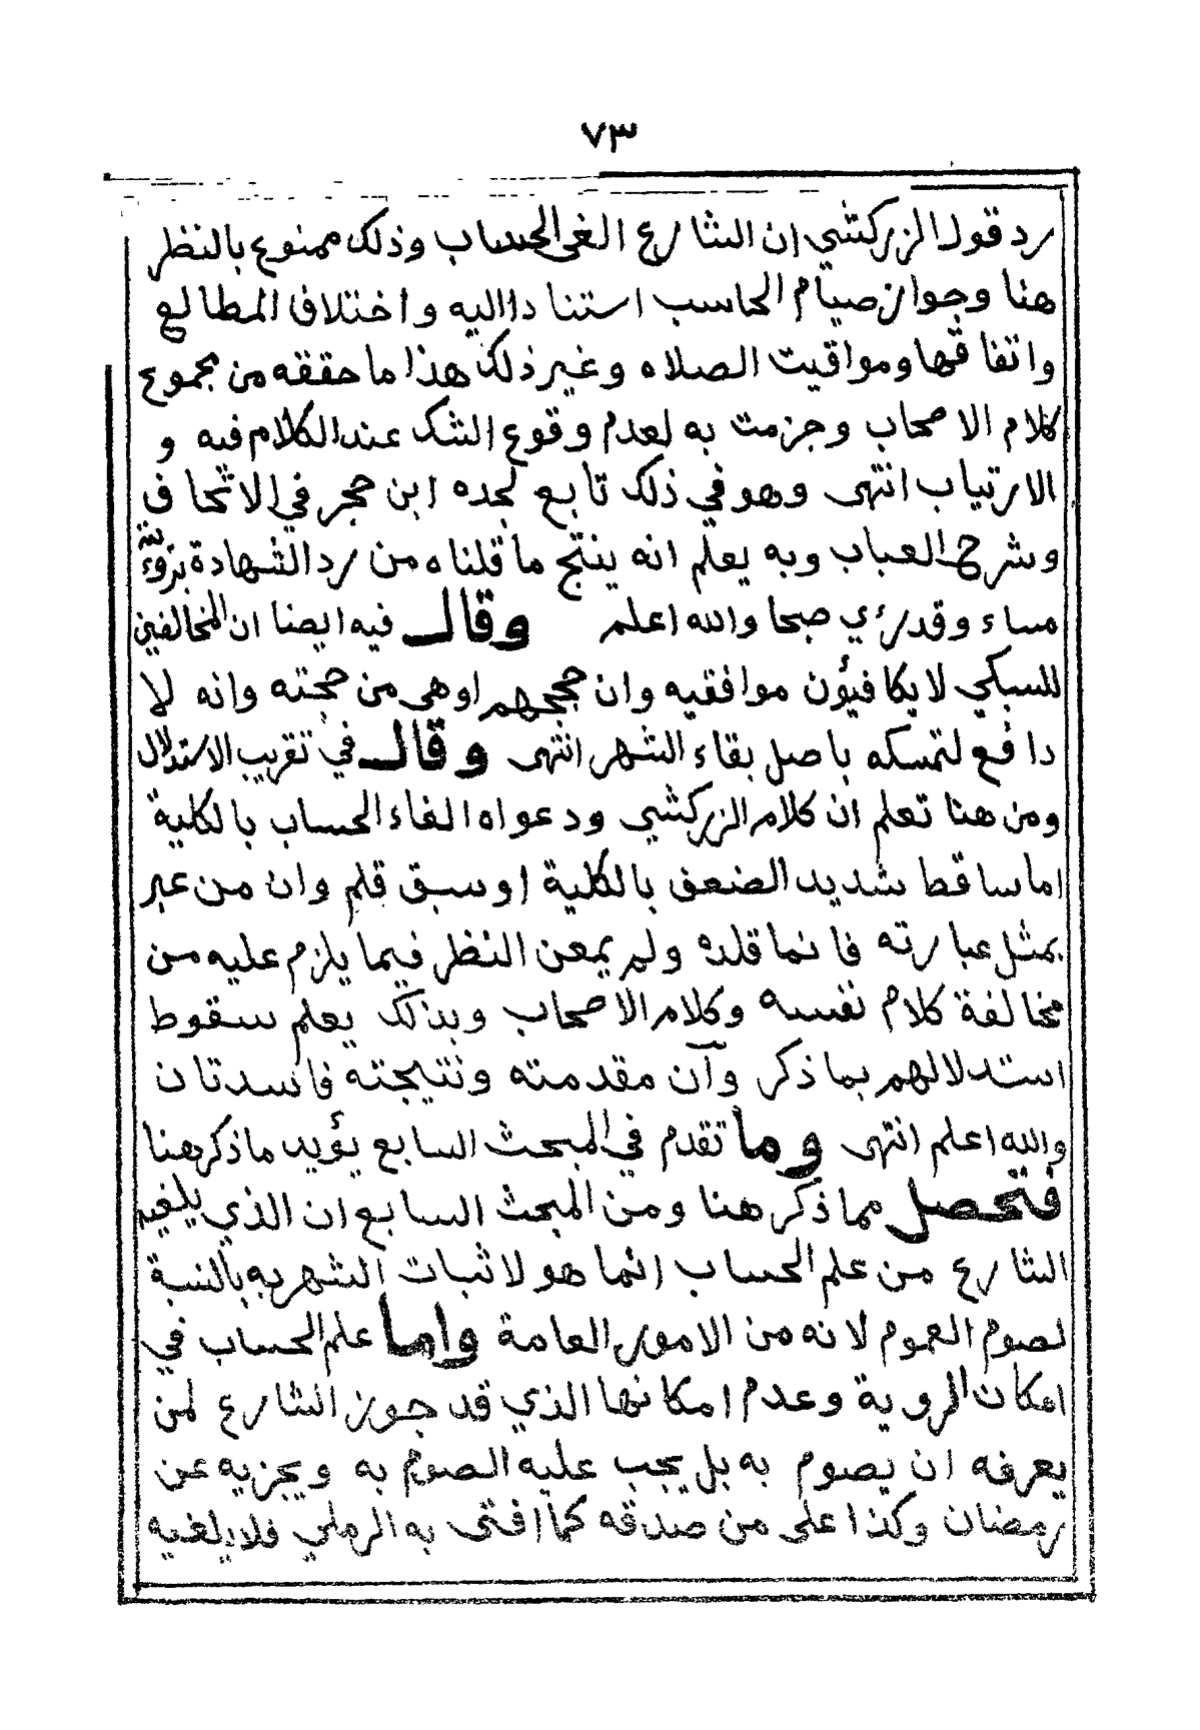 ٧٣
رد قول الزركشي ان الشارع الغى الحساب وذلك ممنوع بالنظر
هنا وجواز صيام الحاسب استنادا اليه واختلاف المطالع
واتفاقها ومواقيت الصلاه وغير ذلك هذا ما حققه من مجموع
كلام الاصحاب وجزمت به لعدم وقوع الشك عند الكلام فيه و
الارتياب انتهى وهو في ذلك تابع لجده ابن حجر في الاتحاف
وشرح العباب وبه يعلم انه ينتج ما قلناه من رد الشهادة برؤيته
مساء وقد رئي صبحا والله اعلم وقال فيه ايضا ان المخالفين
للسبكي لا يكافيؤن موافقيه وان حججهم اوهى من حجته وانه لا
دافع لتمسكه باصل بقاء الشهر انتهى وقال في تقريب الاستدلال
ومن هنا تعلم ان كلام الزركشي ودعواه الغاء الحساب بالكلية
اما ساقط شديد الضعف بالكلية او سبق قلم وان من عبر
بمثل عبارته فانما قلده ولم يمعن النظر فيما يلزم عليه من
مخالفة كلام نفسه وكلام الاصحاب وبذلك يعلم سقوط
استدلالهم بما ذكر وآن مقدمته ونتيجته فاسدتان
والله اعلم انتهى وما تقدم في المبحث السابع يؤيد ما ذكر هنا
فتحصل مما ذكر هنا ومن المبحث السابع ان الذي يلغيه
الشارع من علم الحساب انما هو لاثبات الشهر به بالنسبة
لصوم العموم لانه من الامور العامة واما علم الحساب في
امكان الروية وعدم امكانها الذي قد جوز الشارع لمن
يعرفه ان يصوم به بل يجب عليه الصوم به ويجزيه عن
رمضان وكذا على من صدقه كما افتى به الرملي فلا يلغيه